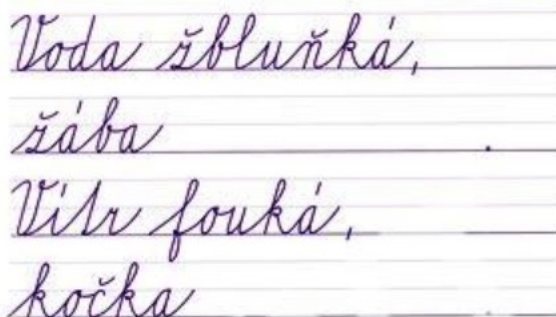 Voda žbluňká,
žába .
Vítr fouká,
kočka .